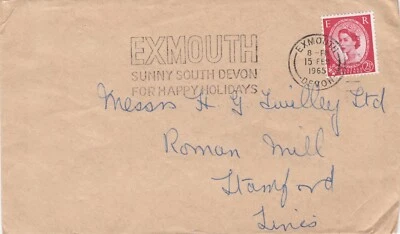 EXMOUTH
SUNNY SOUTH DEVON
FOR HAPPY HOLIDAYS
E R
EXMOUTH
15 FEB
1965
DEVON
Messrs H G Twilley Ltd
Roman Mill
Stamford
Lincs